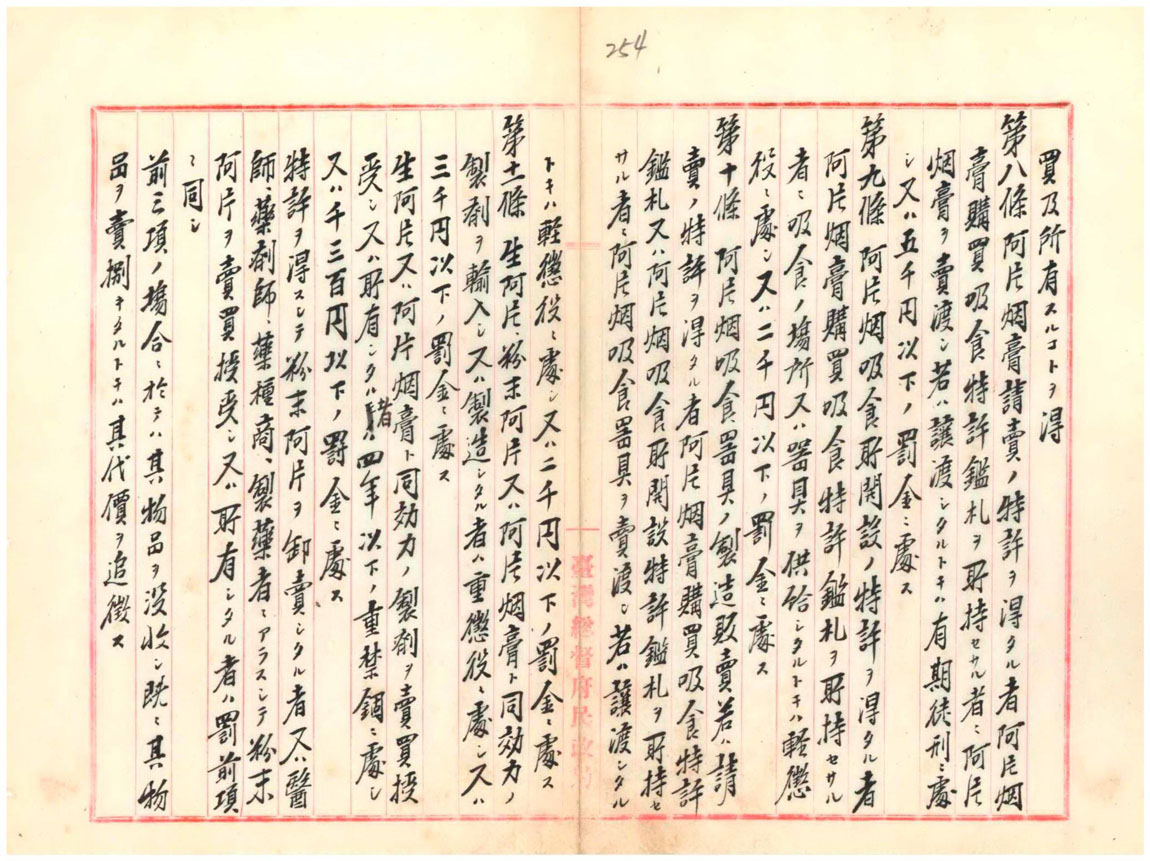 254
買及所有スルコトヲ得
第八條 阿片烟膏請賣ノ特許ヲ得タル者阿片烟
膏購買吸食特許鑑札ヲ所持セサル者ニ阿片
烟膏ヲ賣渡シ若ハ讓渡シタルトキハ有期徒刑ニ處
シ又ハ五千円以下ノ罰金ニ處ス
第九條 阿片烟吸食所開設ノ特許ヲ得タル者
阿片烟膏購買吸ノ食特許鑑札ヲ所持セサル
者ニ吸食ノ場所又ハ器具ヲ供給シタルトキハ輕懲
役ニ處シ又ハ二千円以下ノ罰金ニ處ス
第十條 阿片烟吸食器具ノ製造販賣若ハ請
賣ノ特許ヲ得タル者阿片烟膏購買吸食特許
鑑札又ハ阿片烟吸食所開設特許鑑札ヲ所持セ
サル者ニ阿片烟吸食器具ヲ賣渡シ若ハ讓渡シタル
臺灣總督府民政局
トキハ輕懲役ニ處シ又ハ二千円以下ノ罰金ニ處ス
第十一條 生阿片、粉末阿片又ハ阿片烟膏ト同効力ノ
製剤ヲ輸入シ又ハ製造シタル者ハ重懲役ニ處シ又ハ
三千円以下ノ罰金ニ處ス
生阿片又ハ阿片烟膏ト同効力ノ製剤ヲ賣買授
受シ又ハ所有シタル者ハ四年以下ノ重禁錮ニ處シ
又ハ千三百円以下ノ罰金ニ處ス
特許ヲ得スシテ粉末阿片ヲ卸賣シタル者又ハ醫
師、藥剤師、藥種商、製藥者ニアラスシテ粉末
阿片ヲ賣買授受シ又ハ所有シタル者ハ罰前項
ニ同シ
前三項ノ塲合ニ於テハ其物品ヲ沒收シ既ニ其物
品ヲ賣捌キタルトキハ其代價ヲ追徴ス